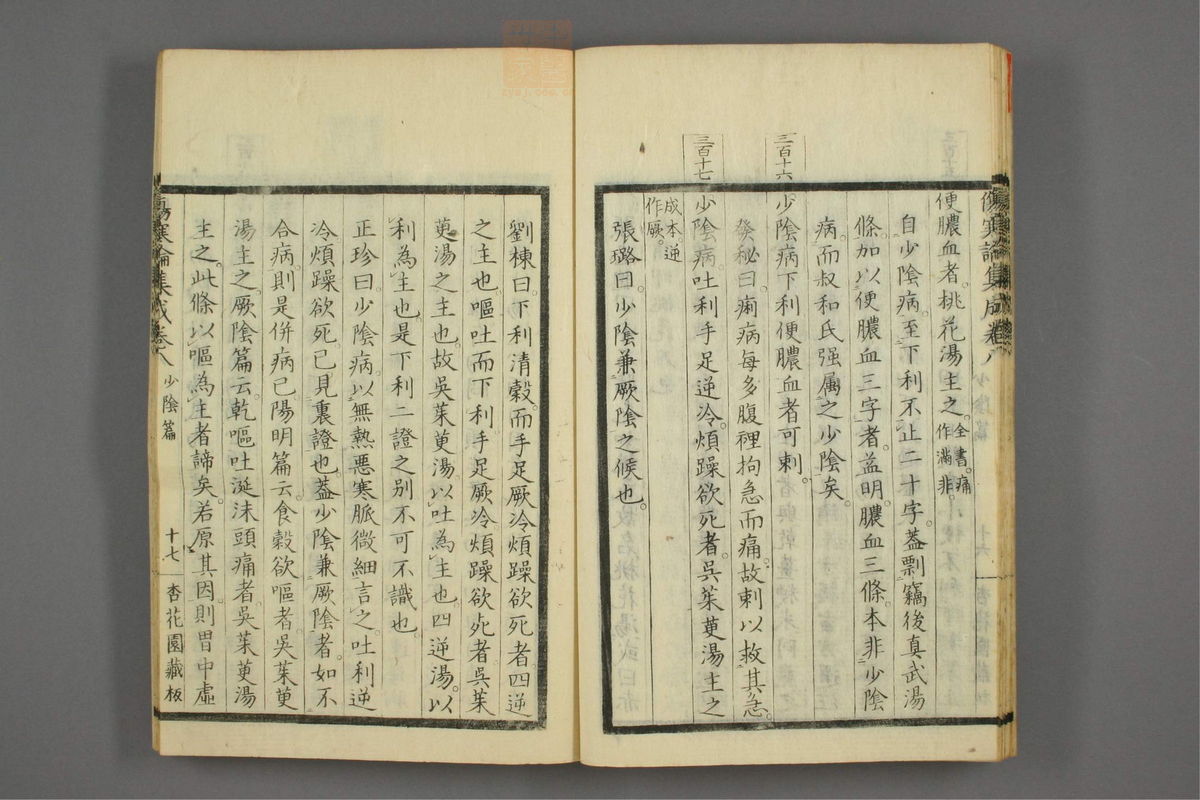 傷寒論集成卷八
便膿血者。桃花湯主之。全書。痛作滿。非
自少陰病。至下利不止二十字。蓋剽竊後真武湯
條。加以便膿血三字者。益明。膿血三條。本非少陰
病。而叔和氏强属之少陰矣。
三百十六
少陰病下利便膿血者可刺。
癸秘曰。痢病每多腹裡拘急而痛。故刺以救其急。
三百十七
少陰病。吐利手足逆冷。煩躁欲死者。吳茱萸湯主之
成本逆作厥。
張璐曰。少陰兼厥陰之候也。
劉棟曰下利清穀。而手足厥冷煩躁欲死者四逆
之主也。嘔吐而下利。手足厥冷煩躁欲死者。吳茱
萸湯之主也。故吳茱萸湯。以吐為主也四逆湯。以
利為主也。是下利二證之別不可不識也
正珍曰。少陰病。以無熱悪寒脈微細言之。吐利逆
冷煩躁欲死。已見裏證也。蓋少陰兼厥陰者。如不
合病。則是併病已。陽明篇云。食穀欲嘔者。吳茱萸
湯主之。厥陰篇云。乾嘔吐涎沫頭痛者。吳茱萸湯
主之。此條以嘔為主者諦矣。若原其因。則胃中虛
傷寒論集成卷八 少陰篇 十七 杏花園藏板